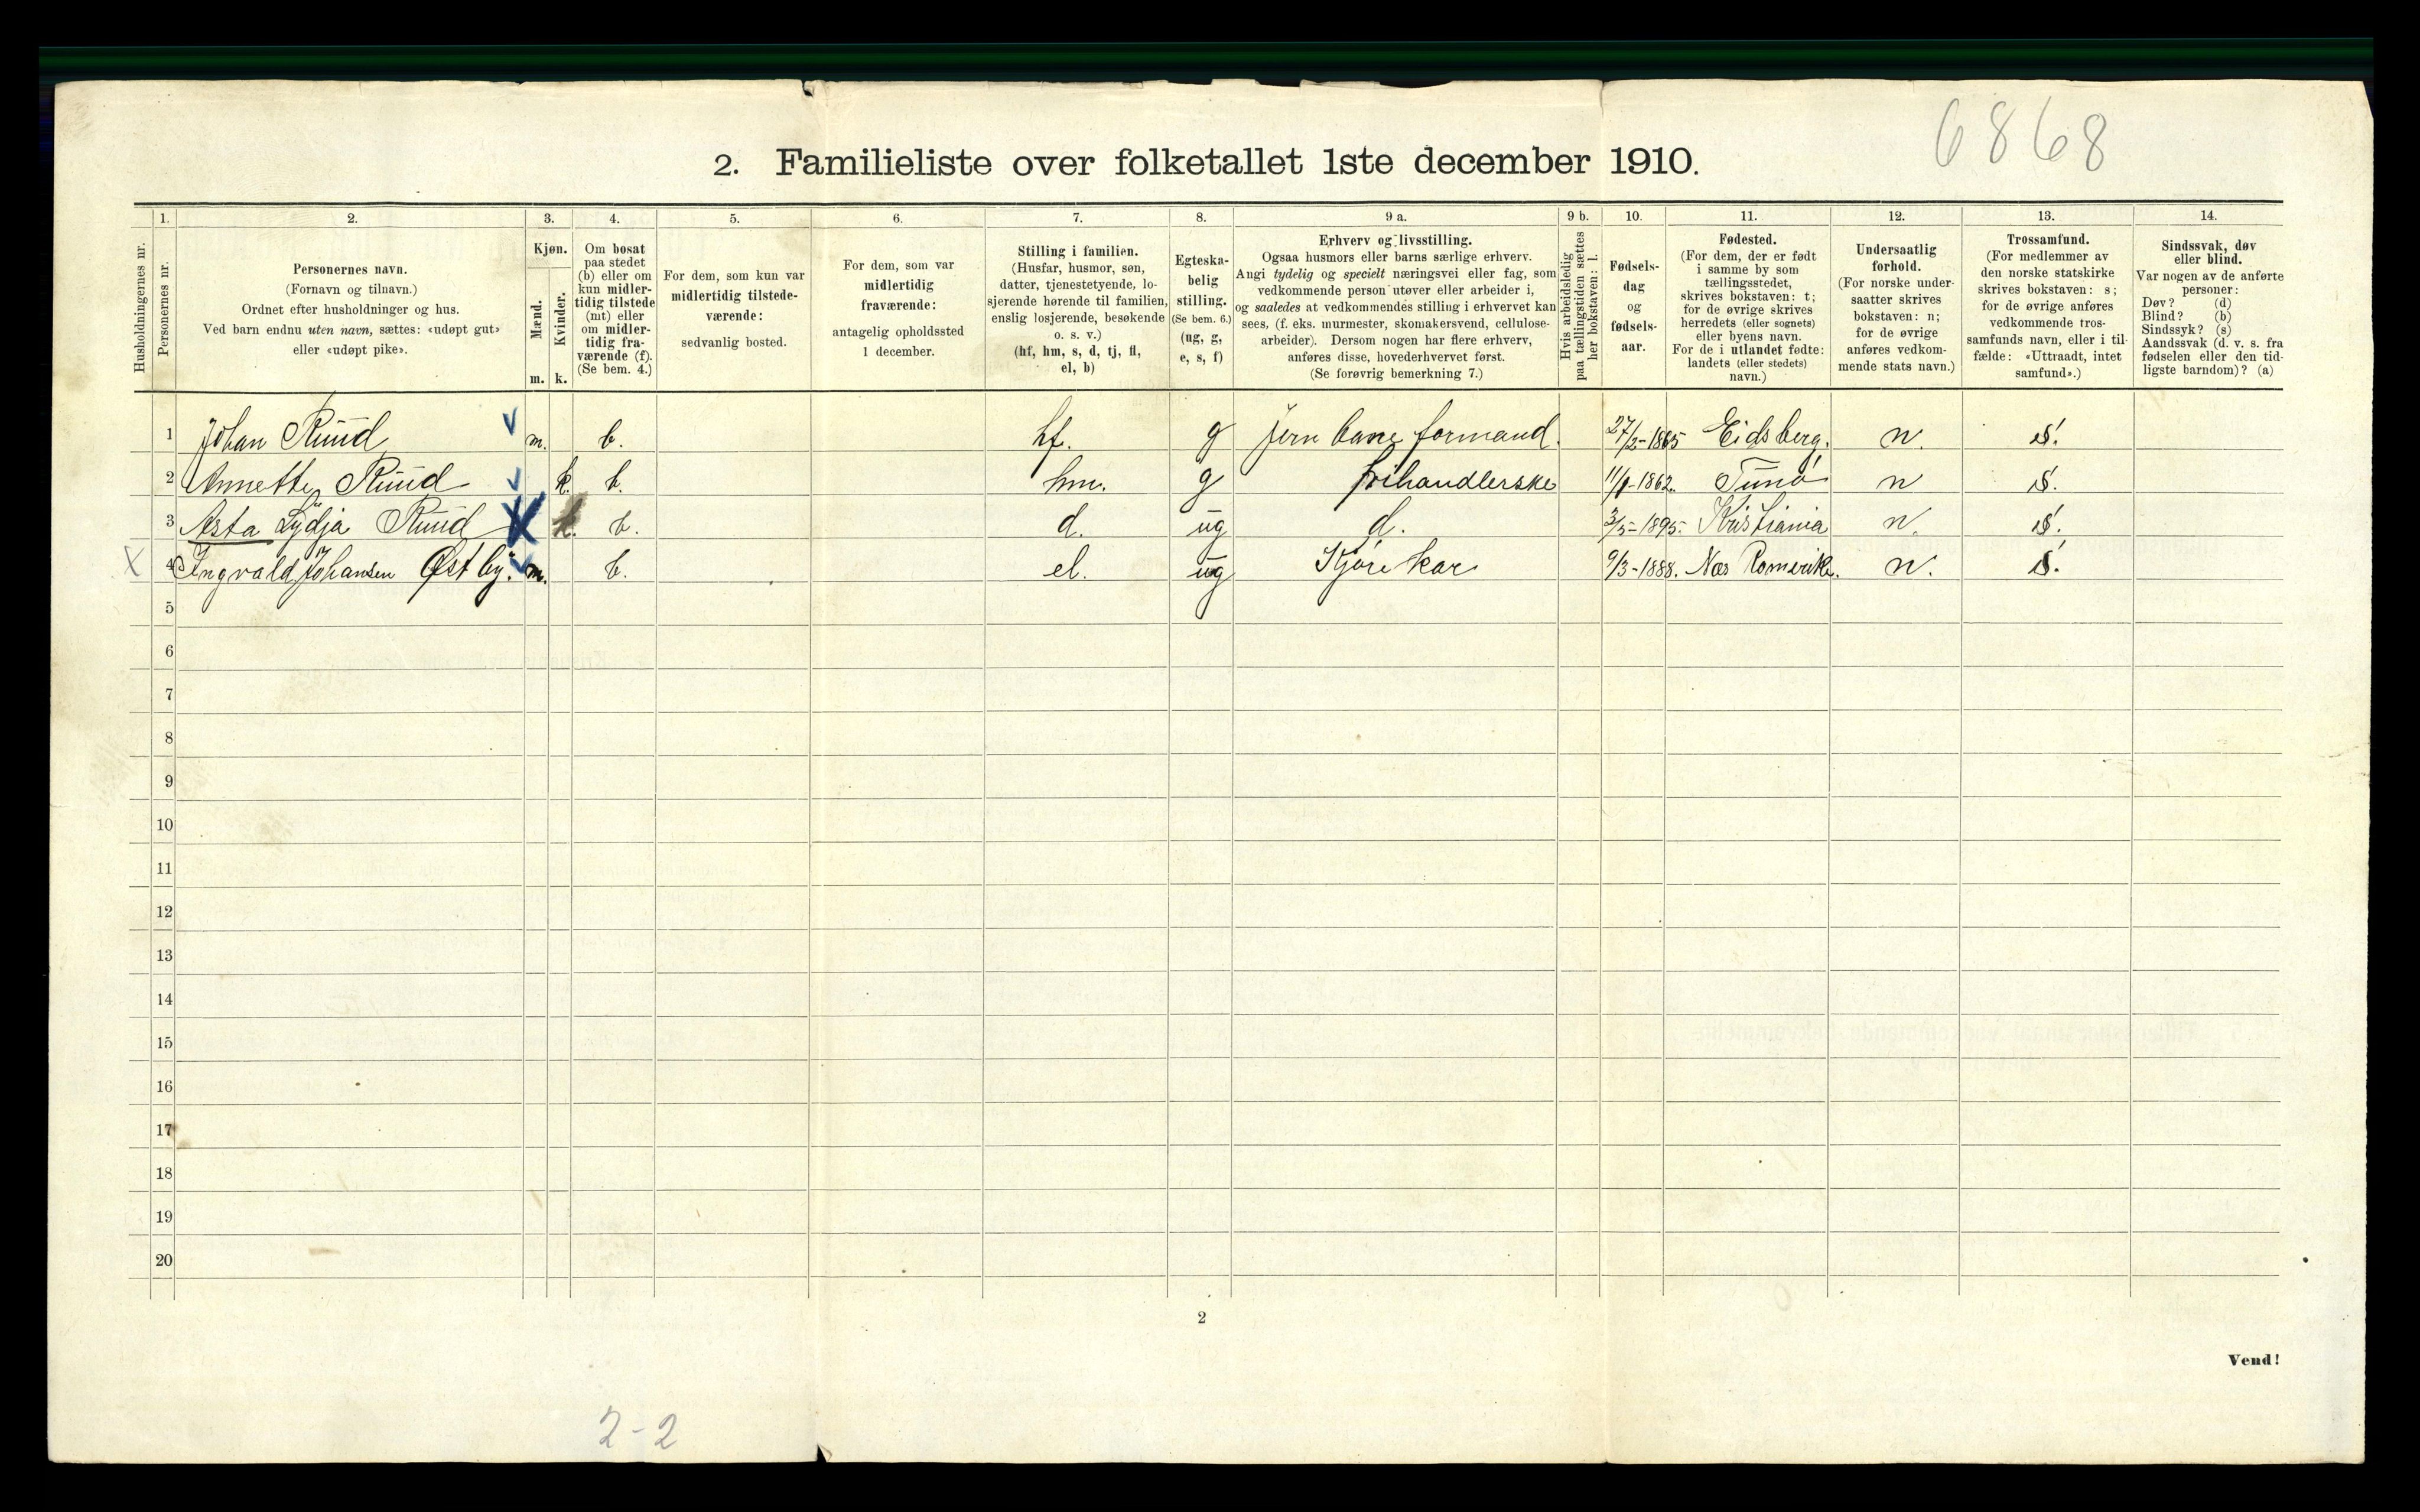 6868
2. Familieliste over folketallet 1ste december 1910.
1. 2. 3. 4. 5. 6. 7. 8. 9 a. 9 b. 10. 11. 12. 13. 14.
Husholdningernes nr.
Personernes nr.
Personernes navn.
(Fornavn og tilnavn.)
Ordnet efter husholdninger og hus.
Ved barn endnu uten navn, sættes: «udøpt gut»
eller «udøpt pike».
Kjøn.
Mænd.
Kvinder.
m. k.
Om bosat
paa stedet
(b) eller om
kun midler-
tidig tilstede
(mt) eller
om midler-
tidig fra-
værende (f).
(Se bem. 4.)
For dem, som kun var
midlertidig tilstede-
værende:
sedvanlig bosted.
For dem, som var
midlertidig
fraværende:
antagelig opholdssted
1 december.
Stilling i familien.
(Husfar, husmor, søn,
datter, tjenestetyende, lo-
sjerende hørende til familien,
enslig losjerende, besøkende
o. s. v.)
(hf, hm, s, d, tj, fl,
el, b)
Egteska-
belig
stilling.
(Se bem. 6.)
(ug, g,
e, s, f)
Erhverv og livsstilling.
Ogsaa husmors eller barns særlige erhverv.
Angi tydelig og specielt næringsvei eller fag, som
vedkommende person utøver eller arbeider i,
og saaledes at vedkommendes stilling i erhvervet kan
sees, (f. eks. murmester, skomakersvend, cellulose-
arbeider). Dersom nogen har flere erhverv,
anføres disse, hovederhvervet først.
(Se forøvrig bemerkning 7.)
Hvis arbeidsledig
paa tællingstiden sættes
her bokstaven: l.
Fødsels-
dag
og
fødsels-
aar.
Fødested.
(For dem, der er født
i samme by som
tællingsstedet,
skrives bokstaven: t;
for de øvrige skrives
herredets (eller sognets)
eller byens navn.
For de i utlandet fødte:
landets (eller stedets)
navn.)
Undersaatlig
forhold.
(For norske under-
saatter skrives
bokstaven: n;
for de øvrige
anføres vedkom-
mende stats navn.)
Trossamfund.
(For medlemmer av
den norske statskirke
skrives bokstaven: s;
for de øvrige anføres
vedkommende tros-
samfunds navn, eller i til-
fælde: «Uttraadt, intet
samfund».)
Sindssvak, døv
eller blind.
Var nogen av de anførte
personer:
Døv? (d)
Blind? (b)
Sindssyk? (s)
Aandssvak (d. v. s. fra
fødselen eller den tid-
ligste barndom)? (a)
1 Johan Ruud m. b. hf. g Jernbane formand. 27/2-1865 Eidsberg. n. s.
2 Annette Ruud k. b. hm. g frihandlerske 11/9-1862. Tunø n s.
3 Asta Lydja Ruud k. b. d. ug d. 3/5-1895. Kristiania n. s.
X 4 Ingvald Johansen Østby. m. b. el. ug Kjørekar 9/3-1888. Næs Romerike. n. s.
5
6
7
8
9
10
11
12
13
14
15
16
17
18
19
20
2
Vend!
2-2